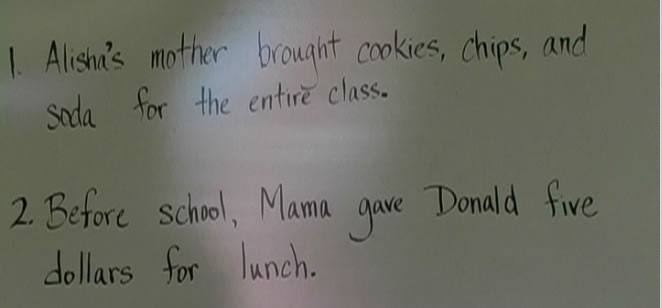 1. Alisha's mother brought cookies, chips, and
soda for the entire class.
2. Before school, Mama gave Donald five
dollars for lunch.